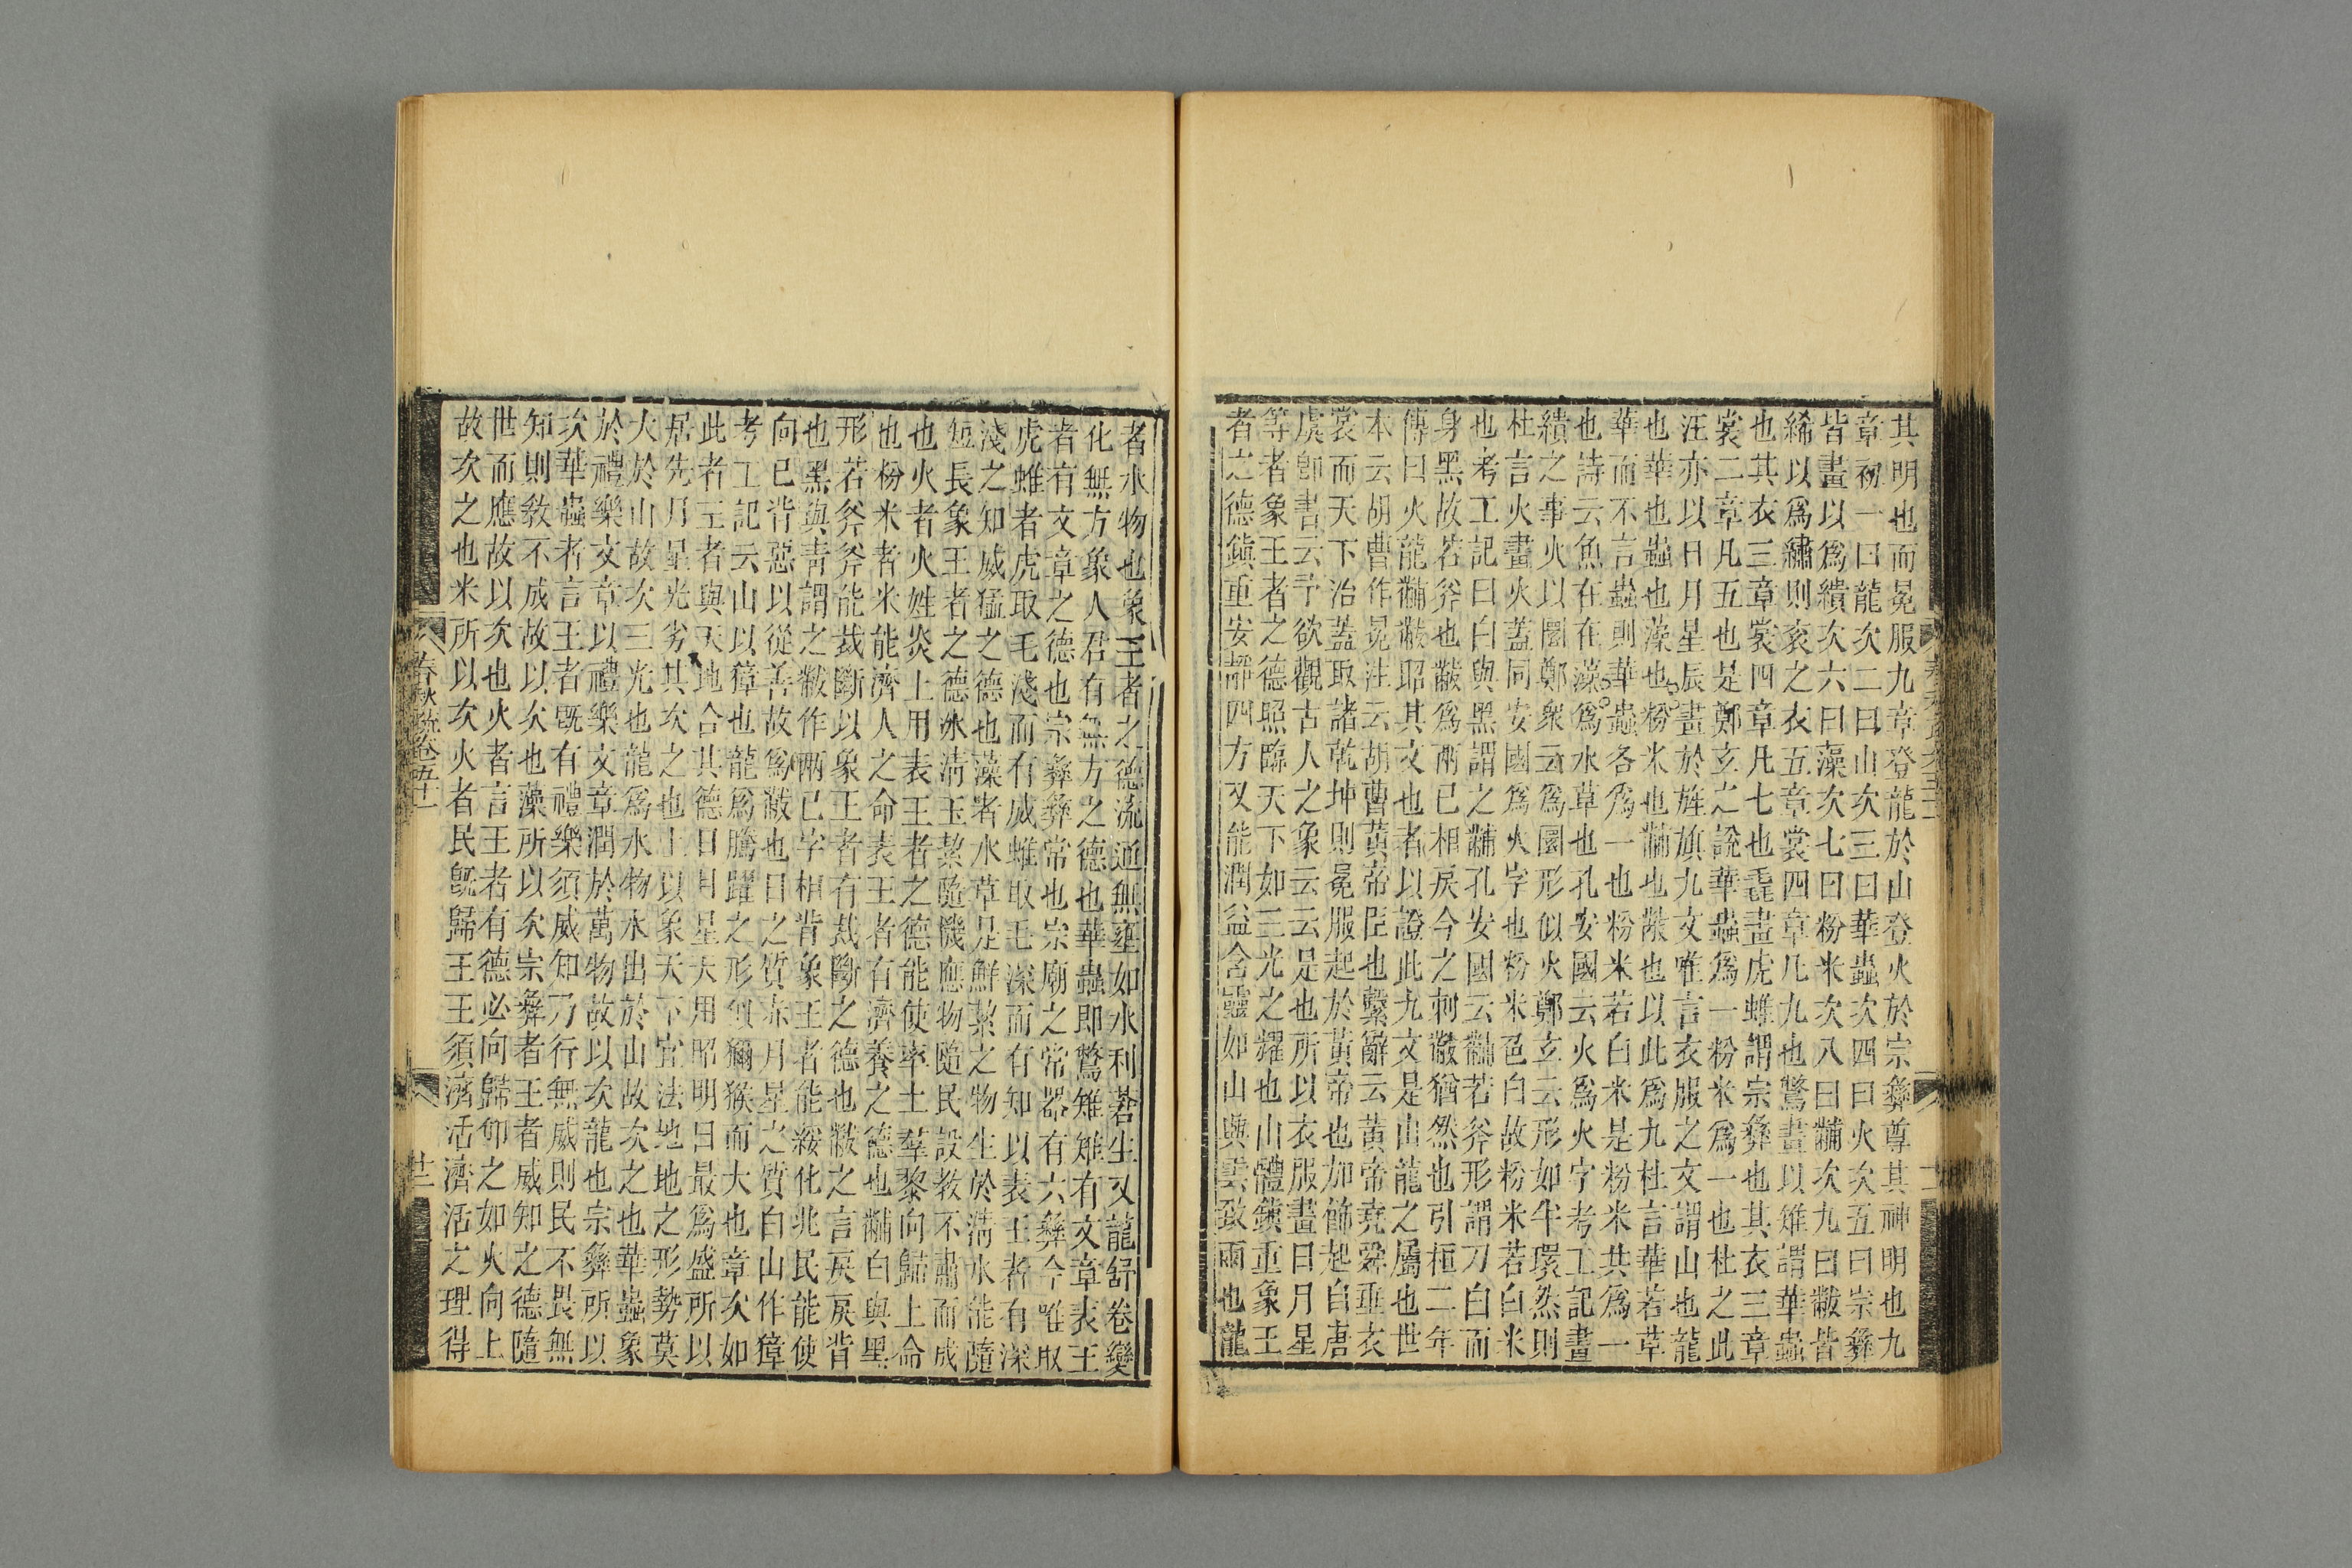 其明也而冕服九章登龍於山登火於宗彝尊其神明也九
章初一曰龍次二曰山次三曰華蟲次四曰火次五曰宗彝
皆畫以爲繢次六曰藻次七曰粉米次八曰黼次九曰黻皆
絺以爲繡則衮之衣五章裳四章凡九也鷩畫以雉謂華蟲
也其衣三章裳四章凡七也毳畫虎蜼謂宗彝也其衣三章
裳二章凡五也是鄭玄之說華蟲爲一粉米爲一也杜之此
注亦以日月星辰畫於旌旗九文唯言衣服之文謂山也龍
也華也蟲也藻也粉米也黼也黻也以此爲九杜言華若草
華而不言蟲則華蟲各爲一也粉米若白米是粉米共爲一
也詩云魚在在藻爲水草也孔安國云火爲火字考工記畫
繢之事火以圜鄭衆云爲圜形似火鄭玄云形如半環然則
杜言火畫火蓋同安國爲火字也粉米色白故粉米若白米
也考工記曰白與黑謂之黼孔安國云黼若斧形謂刀白而
身黑故若斧也黻爲兩已相戾今之刺黻猶然也引桓二年
傳曰火龍黼黻昭其文也者以證此九文是山龍之屬也世
本云胡曹作冕注云胡曹黃帝臣也繫辭云黃帝堯舜垂衣
裳而天下治蓋取諸乾坤則冕服起於黃帝也加飾起自唐
虞卽書云予欲觀古人之象云云是也所以衣服畫日月星
等者象王者之德照臨天下如三光之耀也山體鎭重象王
者之德鎭重安靜四方又能潤益含靈如山興雲致雨也龍
者水物也象王者之德流通無壅如水利蒼生又龍舒卷變
化無方象人君有無方之德也華蟲即鷩雉雉有文章表王
者有文章之德也宗彝彝常也宗廟之常器有六彝今唯取
虎蜼者虎取毛淺而有威蜼取毛深而有知以表王者有深
淺之知威猛之德也藻者水草是鮮絜之物生於淸水能隨
短長象王者之德冰淸玉絜隨機應物隨民設教不肅而成
也火者火姓炎上用表王者之德能使率土羣黎向歸上命
也粉米者米能濟人之命表王者有濟養之德也黼白與黑
形若斧斧能裁斷以象王者有裁斷之德也黻之言戾戾背
也黑與青謂之黻作兩已字相背象王者能綏化兆民能使
向已背惡以從善故爲黻也日之質赤月星之質白山作獐
考工記云山以獐也龍爲騰躍之形似獼猴而大也章次如
此者王者與天地合其德日月星天用昭明日最爲盛所以
居先月星光劣其次之也土以象天下宜法地地之形勢莫
大於山故次三光也龍爲水物水出於山故次之也華蟲象
於禮樂文章以禮樂文章潤於萬物故以次龍也宗彝所以
次華蟲者言王者既有禮樂須威知乃行無威則民不畏無
知則敎不成故以次也藻所以次宗彝者王者威知之德隨
世而應故以次也火者言王者有德必向歸仰之如火向上
故次之也米所以次火者民旣歸王王須濟活濟活之理得
春秋疏卷五十一
廿二